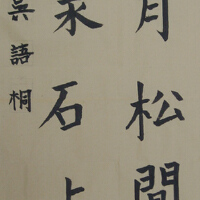 月松間
泉石上
吳語桐